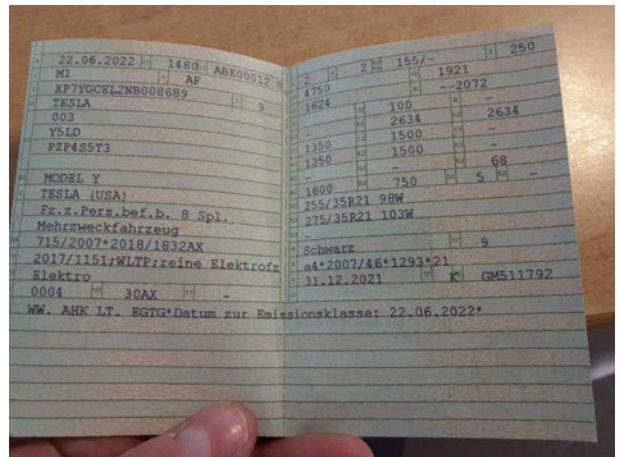 22.06.2022 1480 ABE00012 0
M1 AF
XP7YGCEL2NB008689 9
TESLA
003
Y5LD
PZP4S5T3
MODEL Y
TESLA (USA)
Fz.z.Pers.bef.b. 8 Spl.
Mehrzweckfahrzeug
715/2007*2018/1832AX
2017/1151;WLTP;reine Elektrofz
Elektro
0004 30AX -
2 2 155/- 250
4750 1921
1624 --2072
- 100 -
1350 2634 2634
1350 1500 -
- 1500 -
1600 - 68
750 5 -
255/35R21 98W
275/35R21 103W
-
Schwarz 9
e4*2007/46*1293*21
31.12.2021 K GM511792
WW. AHK LT. EGTG*Datum zur Emissionsklasse: 22.06.2022*